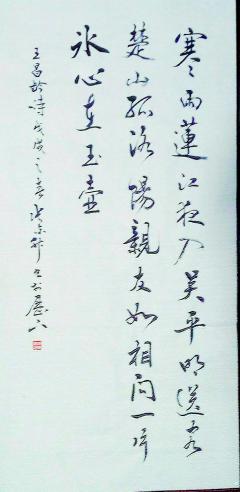 寒雨蓮江夜入吴平明送客
楚山孤洛陽親友如相問一片
冰心在玉壺
王昌龄诗戊戌之春